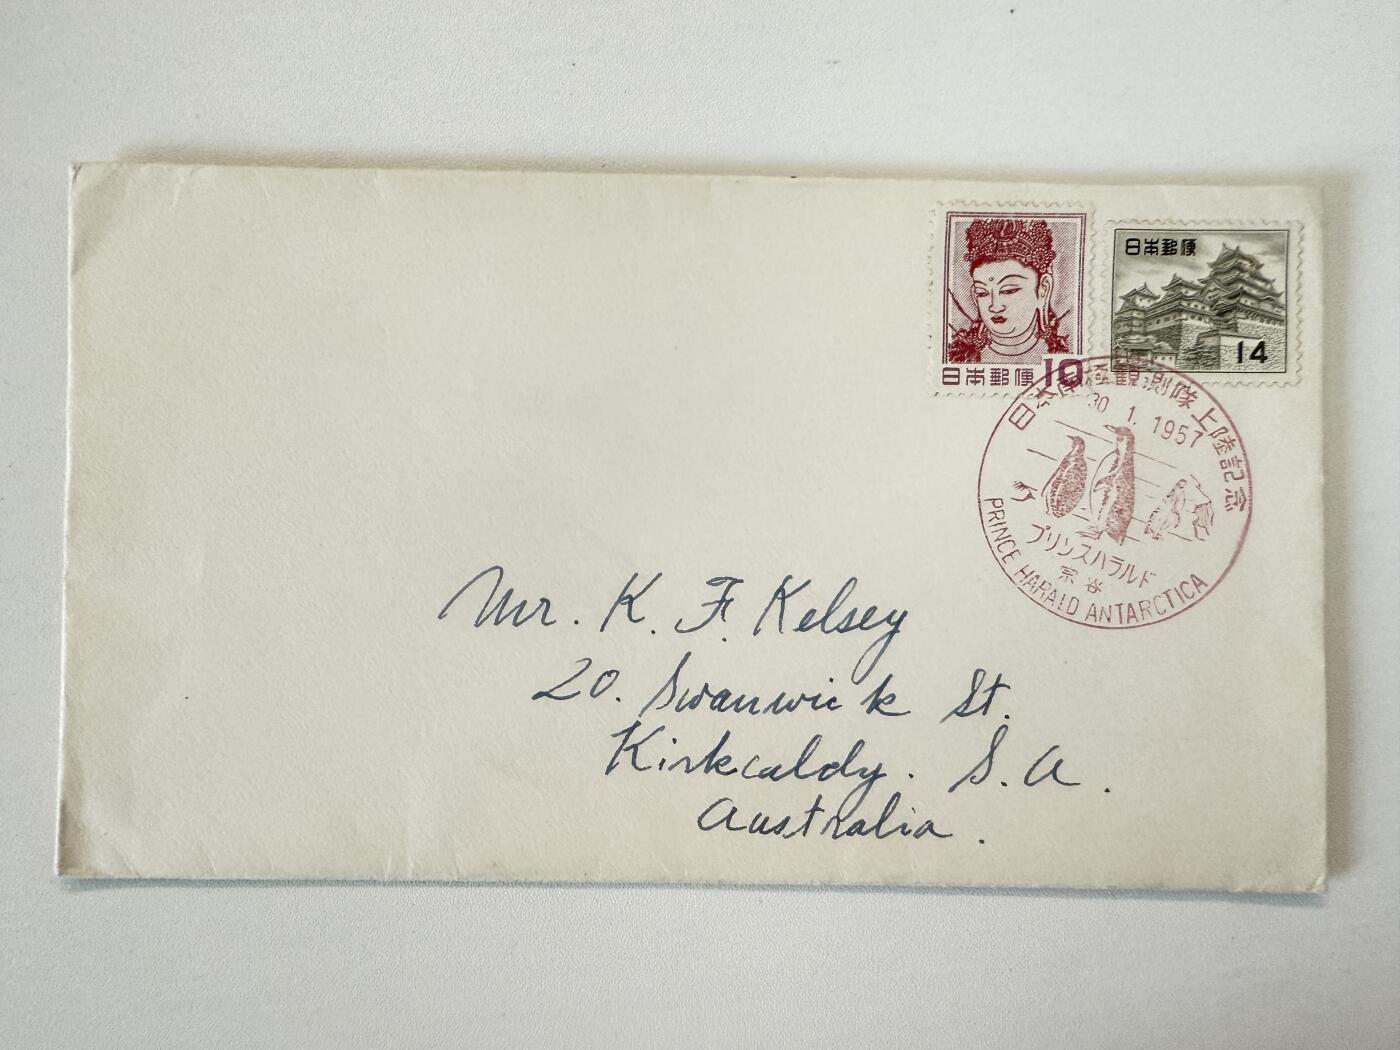 日本郵便 10
日本郵便
14
日本南極観測隊上陸記念
30 1. 1957
プリンスハラルド
宗谷
PRINCE HARALD ANTARCTICA
Mr. K. F. Kelsey
20. Swanwick St.
Kirkcaldy. S. A.
Australia.